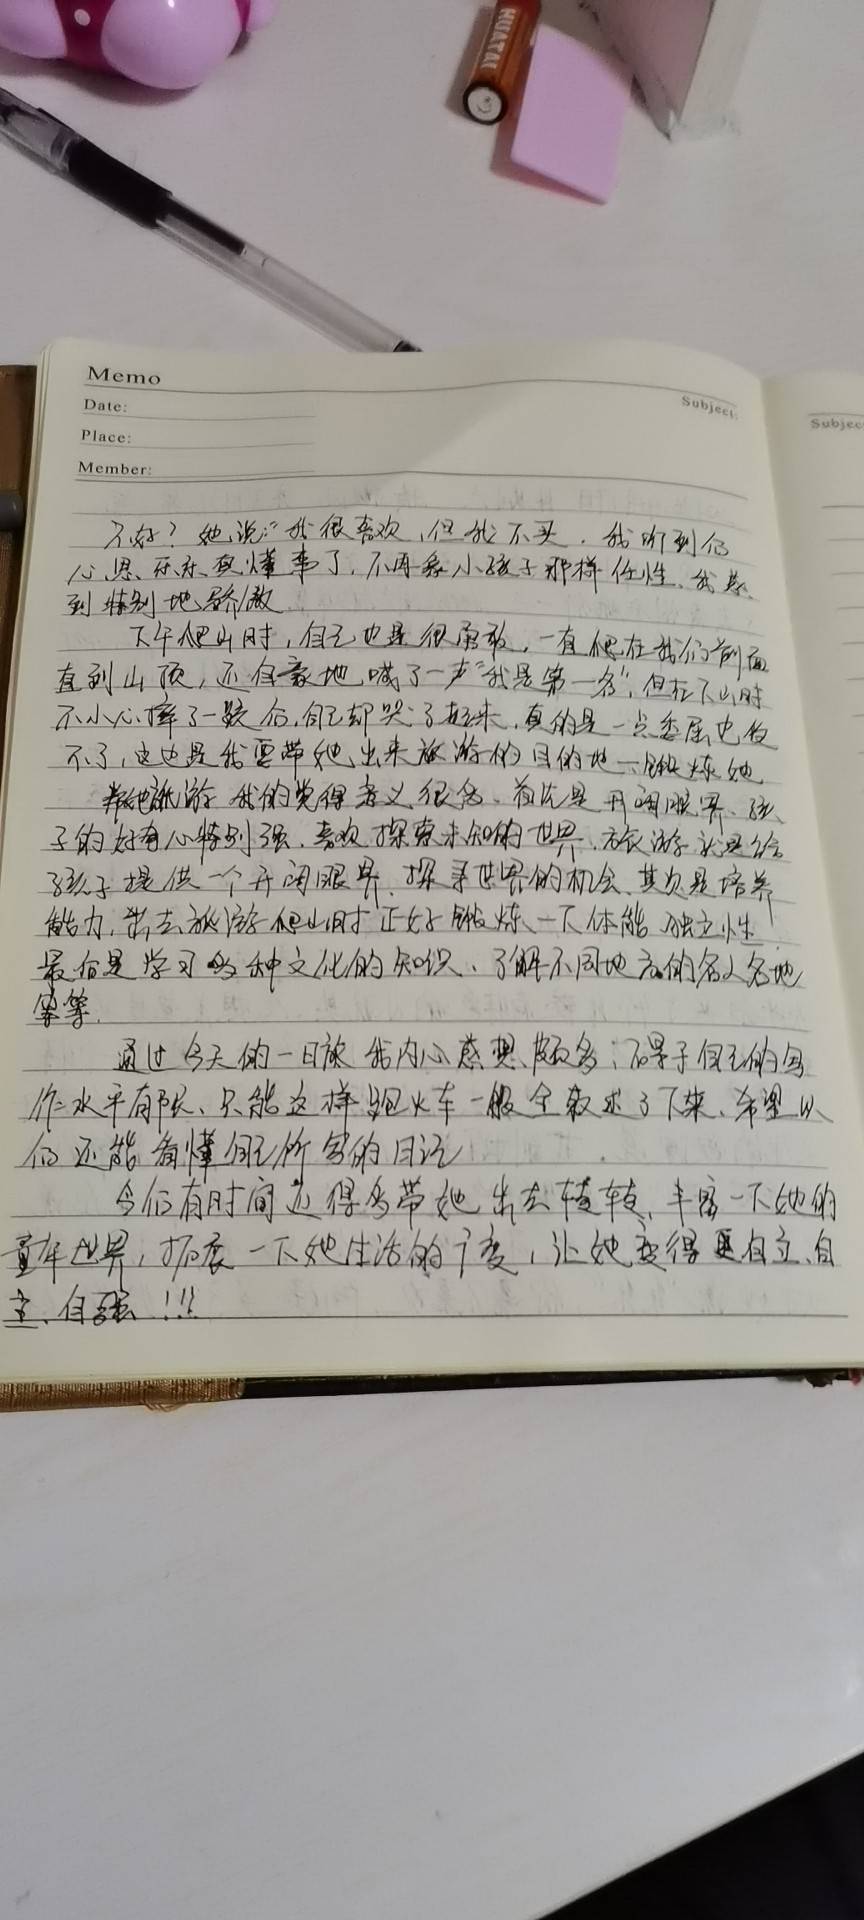 HUATAI
Memo
Date:
Subject:
Place:
Subjec
Member:
不好？她说:"我很喜欢,但我不买.我听到后
心思.乐乐真懂事了,不再像小孩子那样任性、我感
到特别地骄傲
下午爬山时,自己也是很勇敢,一直爬在我们前面
直到山顶,还自豪地喊了一声"我是第一名",但在下山时
不小心摔了一跤后,自己却哭了起来,真的是一点委屈也受
不了,这也是我要带她出来旅游的目的地一锻炼她
带她旅游 我的觉得意义很多、首先是开阔眼界、孩
子的好奇心特别强、喜欢探索未知的世界,旅游就是给
孩子提供一个开阔眼界、探寻世界的机会、其次是培养
能力,出去旅游爬山时正好锻炼一下体能 独立性
最后是学习多种文化的知识、了解不同地方的名人名地
等等.
通过今天的一日旅 我内心感想颇多;碍于自己的写
作水平有限、只能这样跑火车一般全叙述了下来、希望以
后还能看懂自己所写的日记
今后有时间还得多带她出去转转、丰富一下她的
童年世界,拓展一下她生活的广度,让她变得更自立、自
主、自强!!!